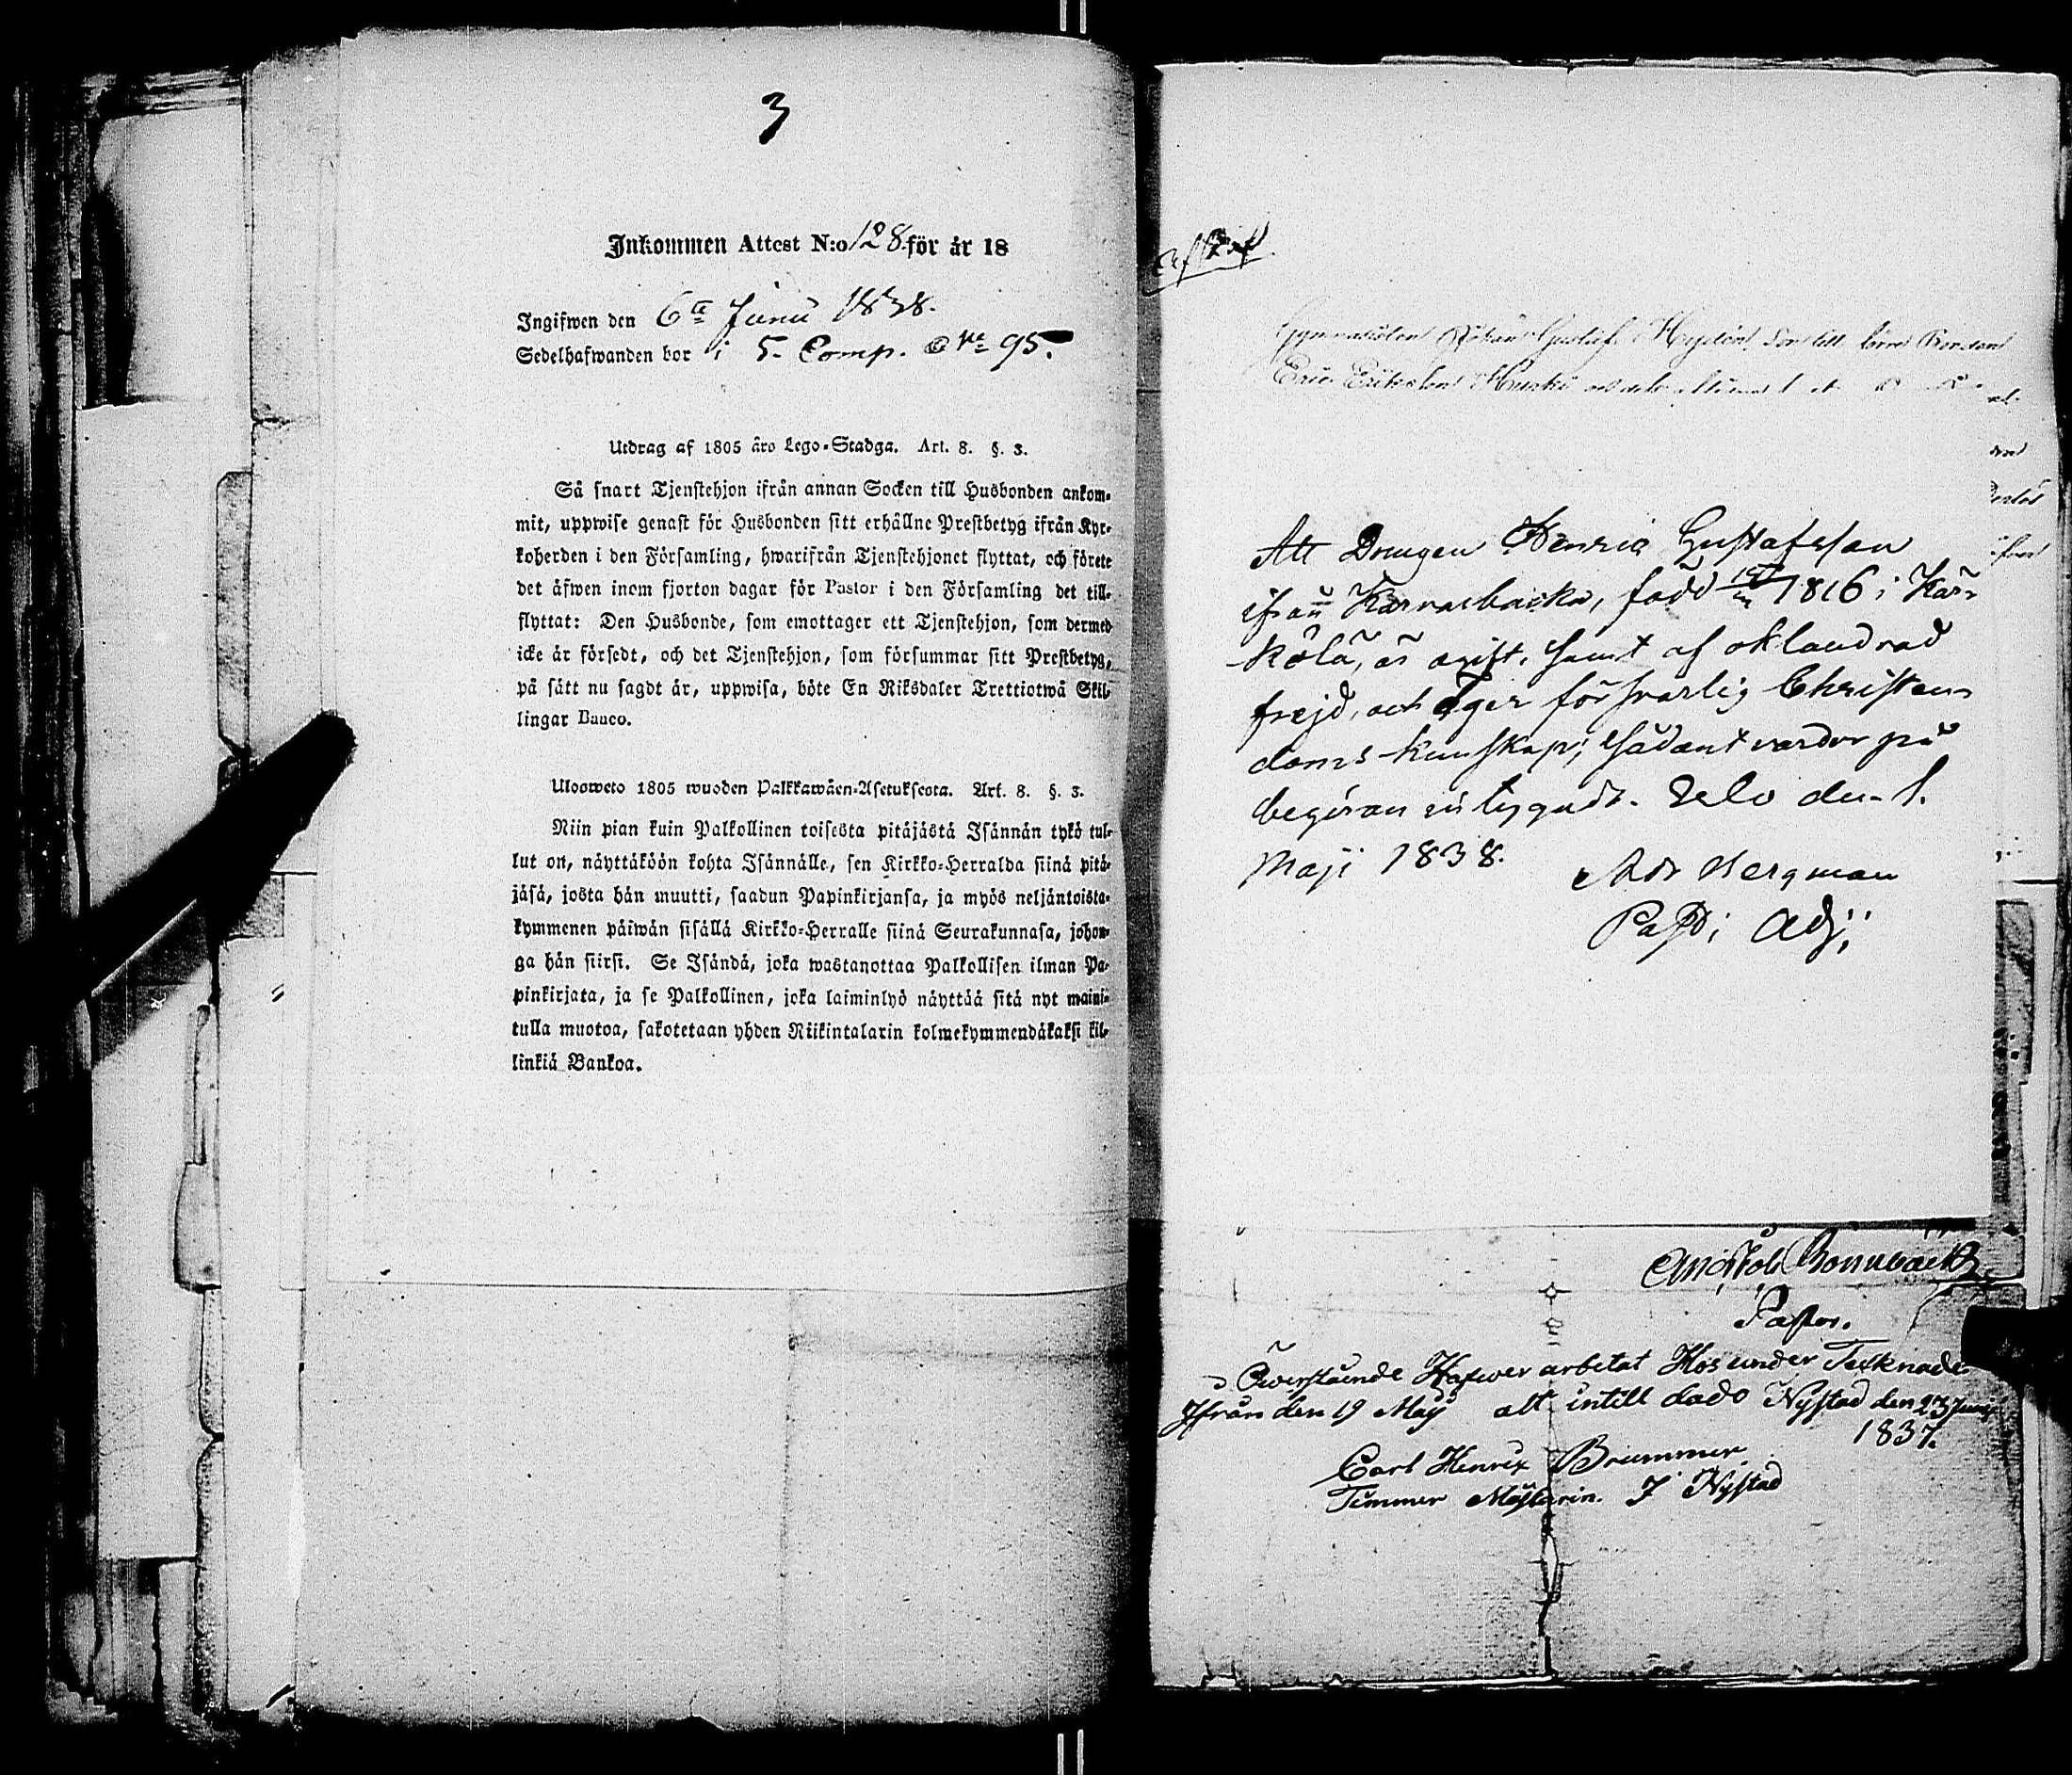 3
Inkommen Attest N:o 128 för år 18
Ingifwen den 6te Junii 1838.
Sedelhafwanden bor i 5. Comp. 95.
Utdrag af 1805 års Lego-Stadga. Art. 8. §. 3.
Så snart Tjenstehjon ifrån annan Socken till Husbonden ankom-
mit, uppwise genast för Husbonden sitt erhållne Prestbetyg ifrån Kyr-
koherden i den Församling, hwarifrån Tjenstehjonet flyttat, och förete
det äfwen inom fjorton dagar för Pastor i den Församling det till-
flyttat: Den Husbonde, som emottager ett Tjenstehjon, som dermed
icke är försedt, och det Tjenstehjon, som försummar sitt Prestbetyg,
på sätt nu sagdt är, uppwisa, böte En Riksdaler Trettiotwå Skil-
lingar Banco.
Uloswето 1805 wuoden Palkkawäen-Asetuksesta. Art. 8. §. 3.
Niin pian kuin Palkollinen toisesta pitäjästä Isännän tykö tul-
lut on, näyttäköön kohta Isännälle, sen Kirkko-Herralda siinä pitä-
jäsä, josta hän muutti, saadun Papinkirjansa, ja myös neljäntoista-
kymmenen päiwän sisällä Kirkko-Herralle siinä Seurakunnasa, johon-
ga hän siirsi. Se Isändä, joka wastanottaa Palkollisen ilman Pa-
pinkirjata, ja se Palkollinen, joka laiminlyö näyttää sitä nyt maini-
tulla muotoa, sakotetaan yhden Riikintalarin kolmekymmendäkaksi kil-
linkiä Bankoa.
Gymnasisten Johan Gustaf son till
Eric Ericsson
Att Drengen Henric Gustafsson
ifrån Karvasbacka, född 1816 i Kär-
kölä, är ogift, samt af oklandrad
frejd, och äger försvarlig Christen-
doms kunskap; sådant varder på
begäran intygadt. Selo den 1.
Maji 1838. Adr Bergman
Past: Adj:
Bonnbäck
Pastor.
Öwerstående Hafwer arbetat Hos under Tecknade
Ifrån den 19 Maÿ alt intill dado Nystad den 23 Junÿ
1837.
Carl Henrix Brummer
Timmer Mästarin. I Nystad